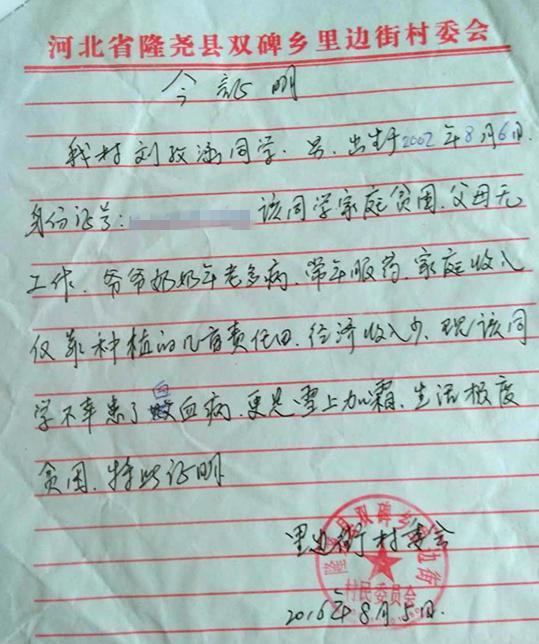 河北省隆尧县双碑乡里边街村委会
今 证 明
我村刘孜涵同学. 男. 出生于2002年8月6日.
身份证号: 该同学家庭贫困. 父母无
工作. 爷爷奶奶年老多病. 常年服药. 家庭收入
仅靠种植的几亩责任田. 经济收入少. 现该同
学不幸患了白血病. 更是雪上加霜. 生活极度
贫困. 特此证明
里边街村委会
隆尧县双碑乡里边街
村民委员会
2016年8月5日.